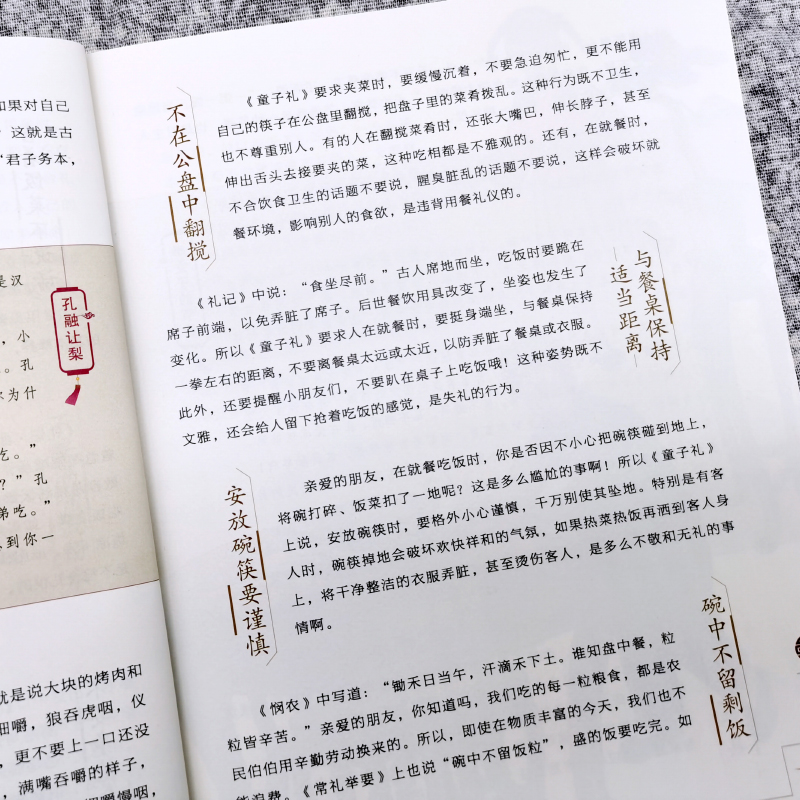 如果对自己
？这就是古
“君子务本，
是汉
孔融让梨
，小
。孔
尔为什
吃。”
？”孔
弟吃。”
到你一
就是说大块的烤肉和
细嚼，狼吞虎咽，仪
，更不要上一口还没
，满嘴吞嚼的样子，
细嚼慢咽，
不在公盘中翻搅
《童子礼》要求夹菜时，要缓慢沉着，不要急迫匆忙，更不能用
自己的筷子在公盘里翻搅，把盘子里的菜肴拨乱。这种行为既不卫生，
也不尊重别人。有的人在翻搅菜肴时，还张大嘴巴，伸长脖子，甚至
伸出舌头去接要夹的菜，这种吃相都是不雅观的。还有，在就餐时，
不合饮食卫生的话题不要说，腥臭脏乱的话题不要说，这样会破坏就
餐环境，影响别人的食欲，是违背用餐礼仪的。
与餐桌保持
适当距离
《礼记》中说：“食坐尽前。”古人席地而坐，吃饭时要跪在
席子前端，以免弄脏了席子。后世餐饮用具改变了，坐姿也发生了
变化。所以《童子礼》要求人在就餐时，要挺身端坐，与餐桌保持
一拳左右的距离，不要离餐桌太远或太近，以防弄脏了餐桌或衣服。
此外，还要提醒小朋友们，不要趴在桌子上吃饭哦！这种姿势既不
文雅，还会给人留下抢着吃饭的感觉，是失礼的行为。
安放碗筷要谨慎
亲爱的朋友，在就餐吃饭时，你是否因不小心把碗筷碰到地上，
将碗打碎、饭菜扣了一地呢？这是多么尴尬的事啊！所以《童子礼》
上说，安放碗筷时，要格外小心谨慎，千万别使其坠地。特别是有客
人时，碗筷掉地会破坏欢快祥和的气氛，如果热菜热饭再洒到客人身
上，将干净整洁的衣服弄脏，甚至烫伤客人，是多么不敬和无礼的事
情啊。
碗中不留剩饭
《悯农》中写道：“锄禾日当午，汗滴禾下土。谁知盘中餐，粒
粒皆辛苦。”亲爱的朋友，你知道吗，我们吃的每一粒粮食，都是农
民伯伯用辛勤劳动换来的。所以，即使在物质丰富的今天，我们也不
能浪费。《常礼举要》上也说“碗中不留饭粒”，盛的饭要吃完。如